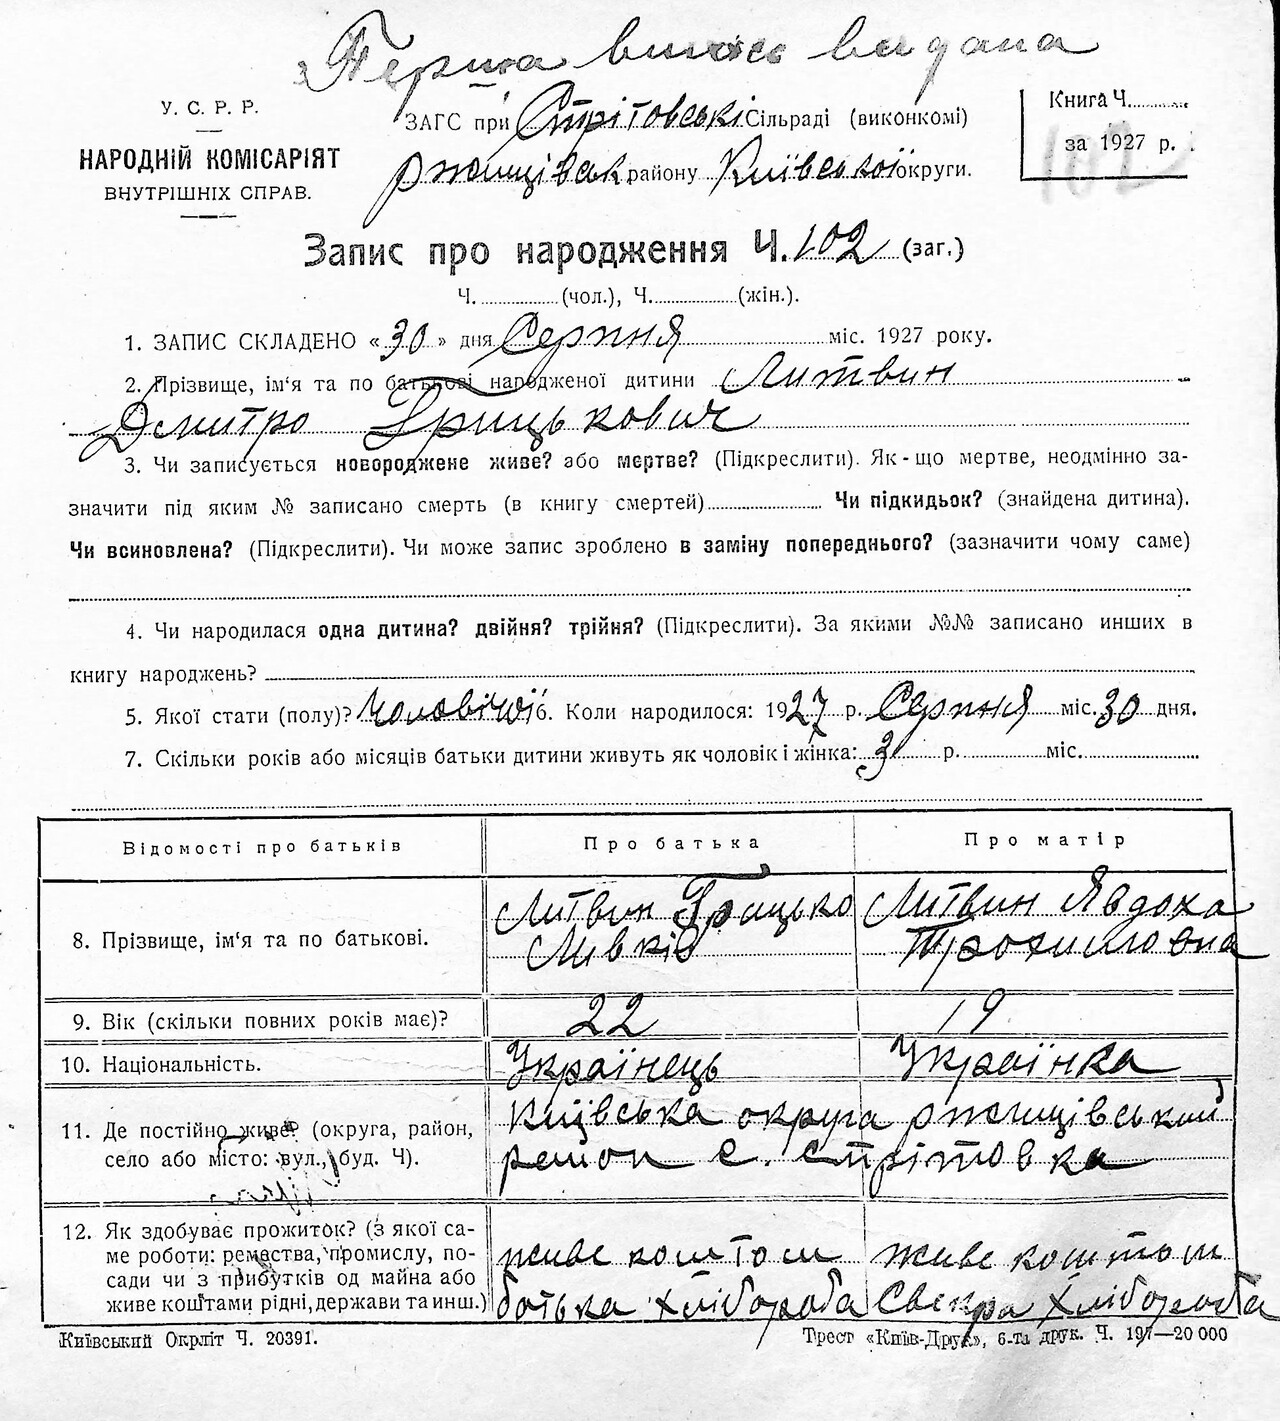 Перша випись видана
У. С. Р. Р.
НАРОДНІЙ КОМІСАРІЯТ
ВНУТРІШНІХ СПРАВ.
ЗАГС при Стрітовські Сільраді (виконкомі)
ржищівськ району Київської округи.
Книга Ч.
за 1927 р.
102
Запис про народження Ч. 102 (заг.)
Ч. (чол.), Ч. (жін.).
1. ЗАПИС СКЛАДЕНО « 30 » дня Серпня міс. 1927 року.
2. Прізвище, ім‘я та по батькові народженої дитини Литвин
Дмитро Грицькович
3. Чи записується новороджене живе? або мертве? (Підкреслити). Як-що мертве, неодмінно за-
значити під яким № записано смерть (в книгу смертей) Чи підкидьок? (знайдена дитина).
Чи всиновлена? (Підкреслити). Чи може запис зроблено в заміну попереднього? (зазначити чому саме)
4. Чи народилася одна дитина? двійня? трійня? (Підкреслити). За якими №№ записано инших в
книгу народжень?
5. Якої стати (полу)? Чоловічої 6. Коли народилося: 1927 р. Серпня міс. 30 дня.
7. Скільки років або місяців батьки дитини живуть як чоловік і жінка: 3 р. міс.
Відомості про батьків Про батька Про матір
8. Прізвище, ім‘я та по батькові. Литвин Грицько Литвин Явдоха
Ливків Трохимовна
9. Вік (скільки повних років має)? 22 19
10. Національність. Українець Українка
11. Де постійно живе? (округа, район, Київська округа ржищівський
село або місто: вул., буд. Ч). район с. стрітовка
12. Як здобуває прожиток? (з якої са-
ме роботи: ремества, промислу, по- живе коштом живе коштом
сади чи з прибутків од майна або
живе коштами рідні, держави та инш.) батька хлібороба Свекра хлібороба
Київський Окрліт Ч. 20391. Трест «Київ-Друк», 6-та друк. Ч. 197—20 000